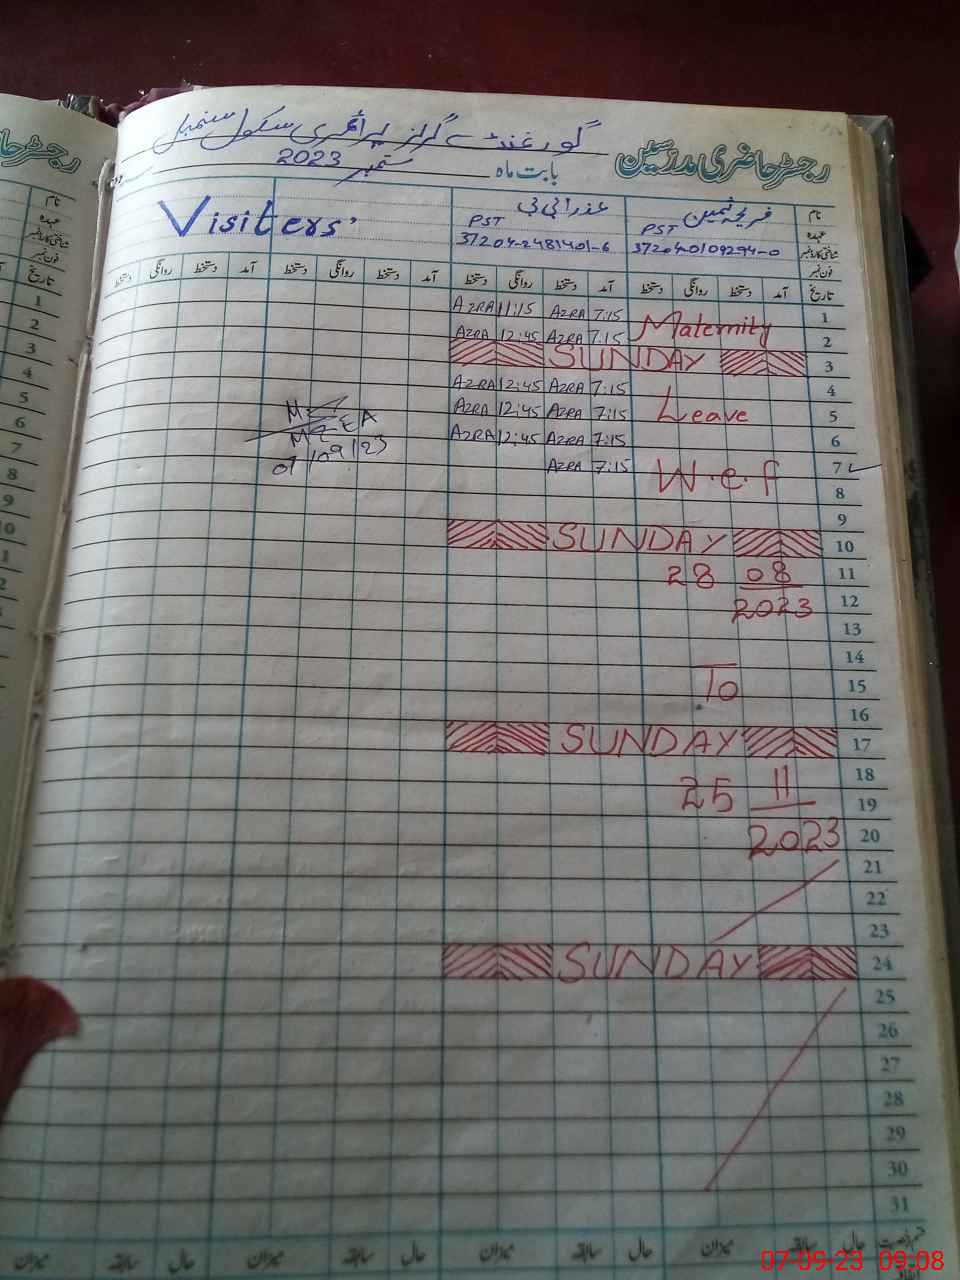 گورنمنٹ گرلز پرائمری سکول سنمبل
رجسٹر حاضری مدرسین
بابت ماہ ستمبر 2023
نام فریحہ ثمین عذرا بی بی Visiters'
عہدہ PST PST
شناختی کارڈ نمبر 37204-0109294-0 37204-2481401-6
فون نمبر
تاریخ آمد دستخط روانگی دستخط آمد دستخط روانگی دستخط آمد دستخط روانگی دستخط آمد دستخط روانگی دستخط
AZRA 11:15 AZRA 7:15 Maternity 1
AZRA 12:45 AZRA 7:15 2
SUNDAY 3
AZRA 12:45 AZRA 7:15 4
AZRA 12:45 AZRA 7:15 Leave 5
AZRA 12:45 AZRA 7:15 6
AZRA 7:15 W.e.f 7
MEA
07/09/23
8
9
SUNDAY 10
28 08 11
2023 12
13
14
To 15
16
SUNDAY 17
18
25 11 19
2023 20
21
22
23
SUNDAY 24
25
26
27
28
29
30
31
حال سابقہ میزان حال سابقہ میزان حال سابقہ میزان حال سابقہ میزان
07-09-23 09:08
1
2
3
4
5
6
7
8
9
10
11
12